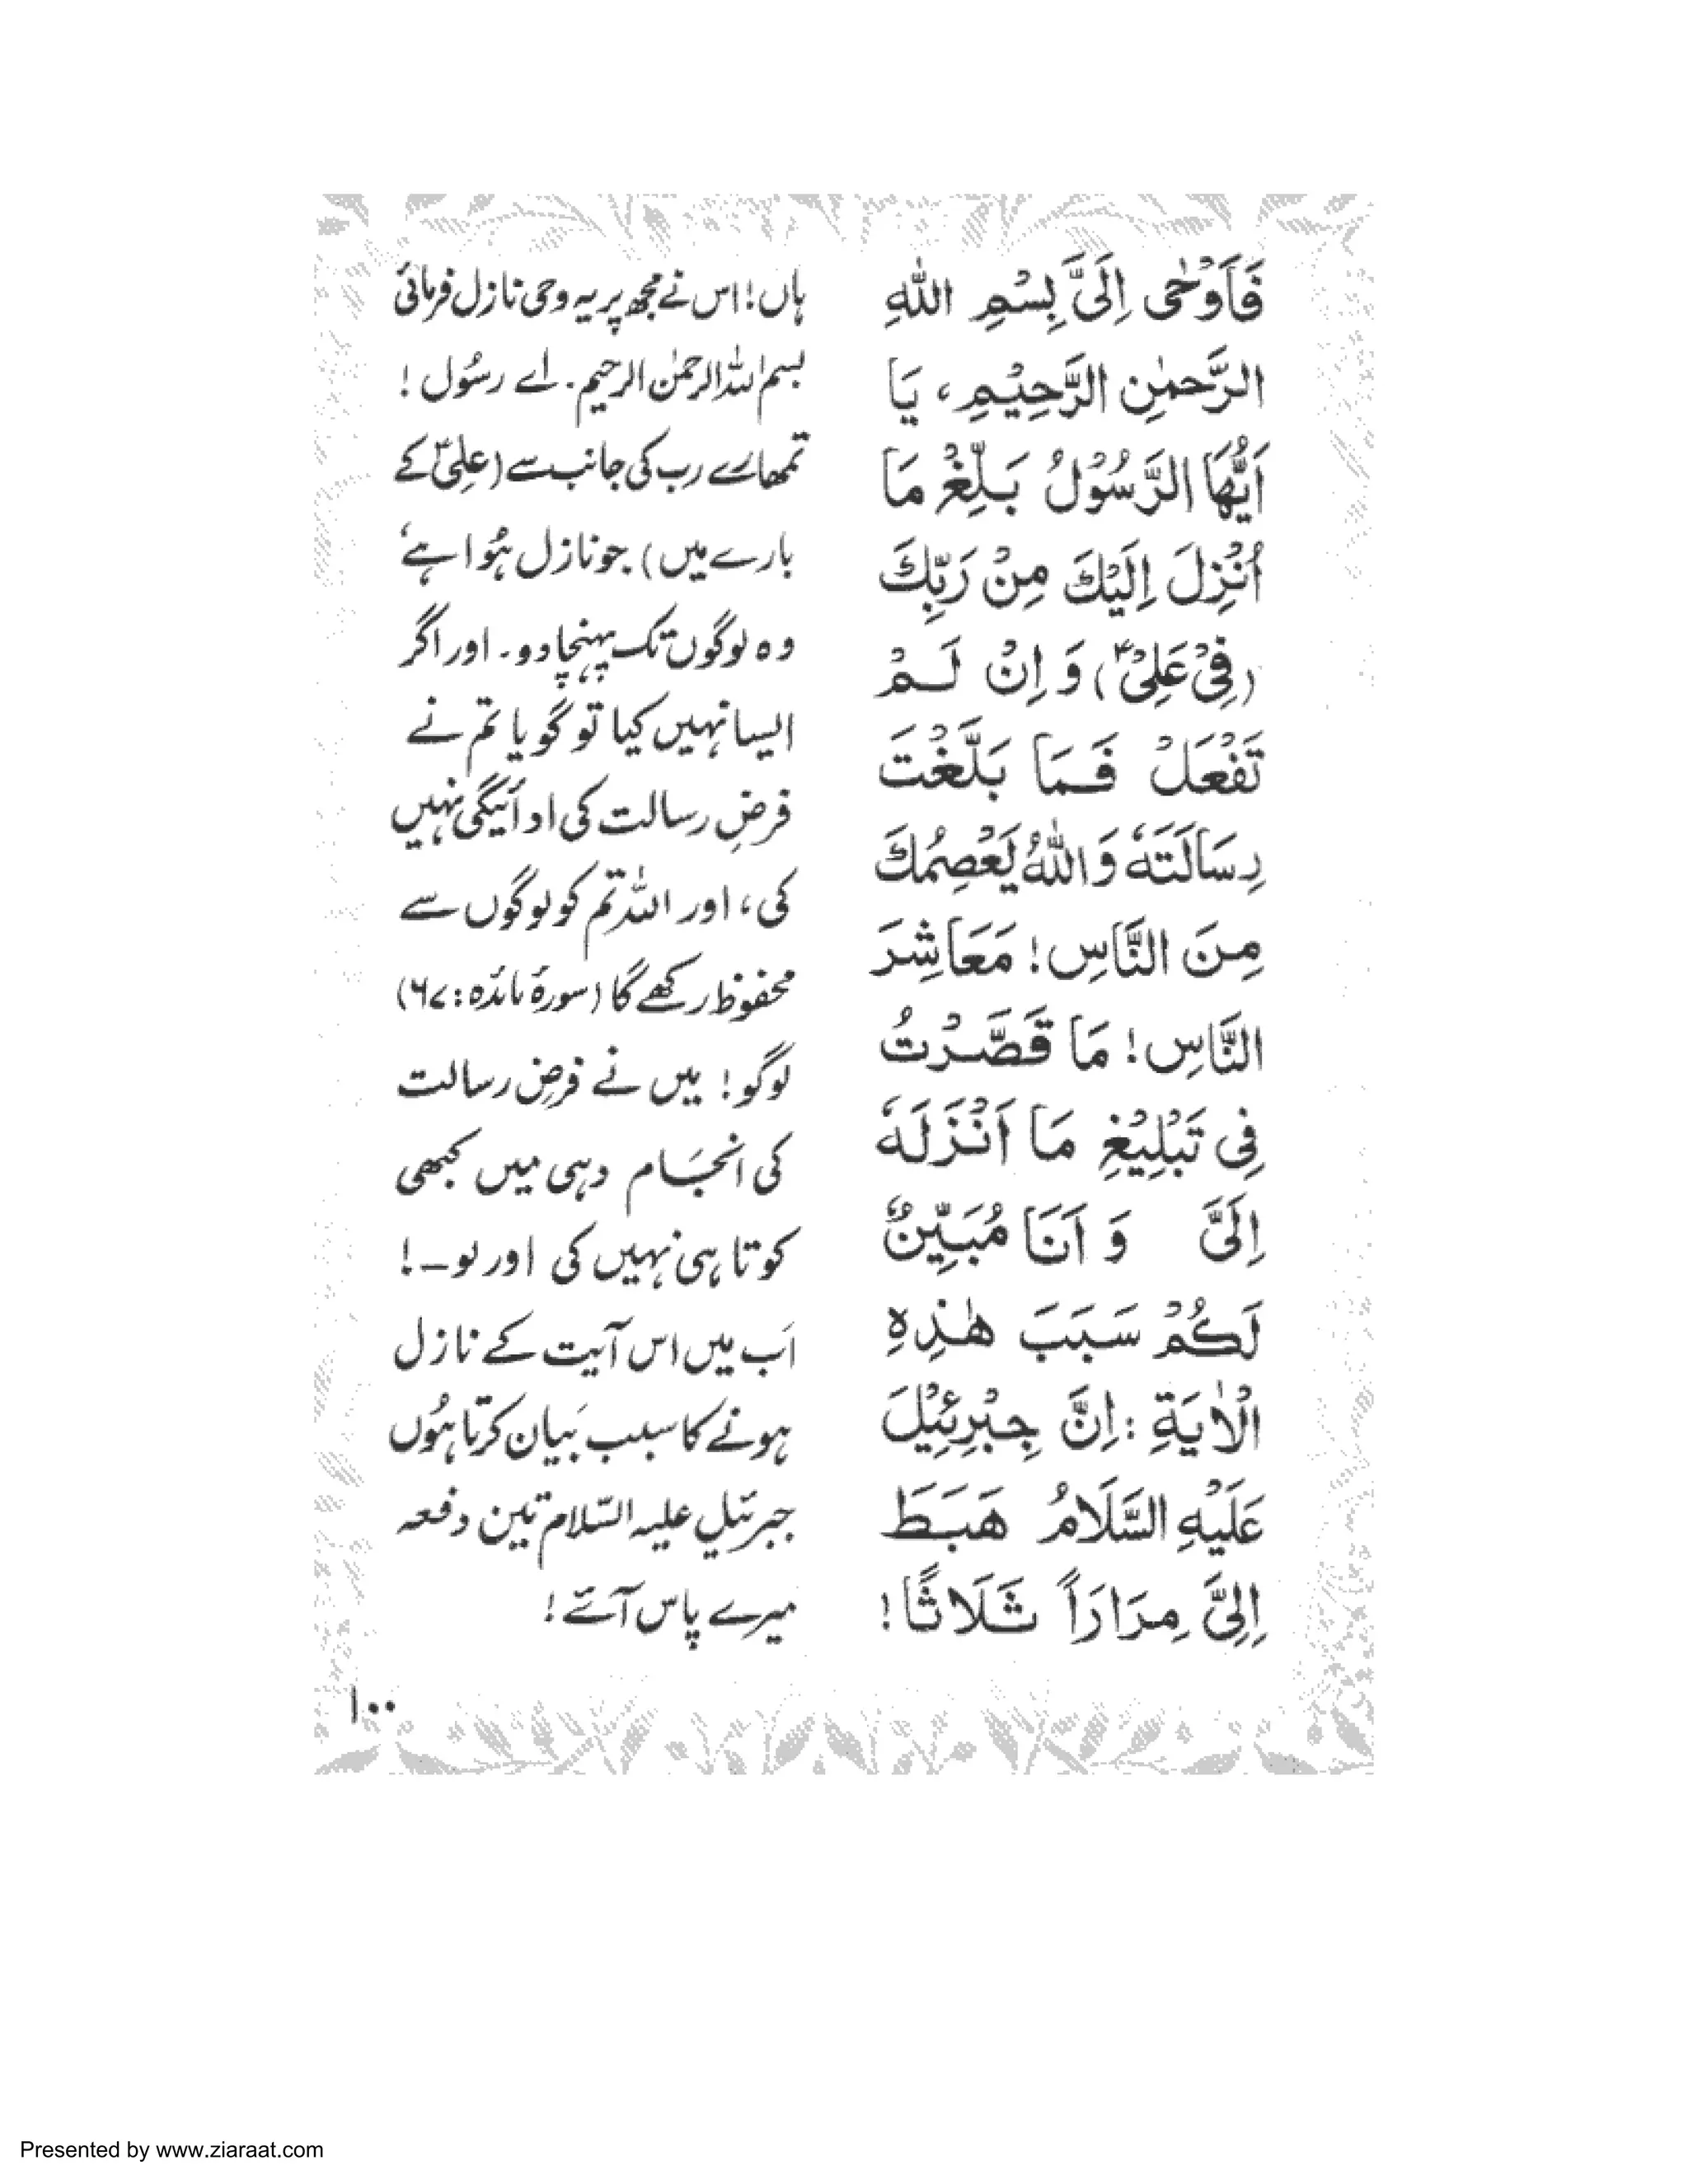 فَاَوْحٰی اِلَیَّ بِسْمِ اللهِ
الرَّحمٰنِ الرَّحِیْمِ، یَا
اَیُّهَا الرَّسُوْلُ بَلِّغْ مَا
اُنْزِلَ اِلَیْكَ مِنْ رَبِّكَ
(فِیْ عَلِیْؑ) وَ اِنْ لَمْ
تَفْعَلْ فَمَا بَلَّغْتَ
رِسَالَتَهٗ وَاللهُ یَعْصِمُكَ
مِنَ النَّاسِ! مَعَاشِرَ
النَّاسِ! مَا قَصَّرْتُ
فِی تَبْلِیْغِ مَا اَنْزَلَهٗ
اِلَیَّ وَ اَنَا مُبَیِّنٌ
لَكُمْ سَبَبَ هٰذِهِ
الْاٰیَةِ: اِنَّ جِبْرِئِیْلَ
عَلَیْهِ السَّلَامُ هَبَطَ
اِلِیَّ مِرَارَاً ثَلَاثًا!
ہاں! اس نے مجھ پر یہ وحی نازل فرمائی
بسم اللہ الرحمٰن الرحیم۔ اے رسُول!
تمھارے رب کی جانب سے (علیؑ کے
بارے میں) جو نازل ہُوا ہے،
وہ لوگوں تک پہنچا دو۔ اور اگر
ایسا نہیں کیا تو گویا تم نے
فرضِ رسالت کی ادائیگی نہیں
کی، اور اللہ تم کو لوگوں سے
محفوظ رکھے گا (سورۂ مائدہ: ۶۷)
لوگو! میں نے فرضِ رسالت
کی انجَام دہی میں کبھی
کوتاہی نہیں کی اور لو۔!
اَب میں اس آیت کے نازل
ہونے کا سبب بَیان کرتا ہُوں
جبرئیل علیہ السّلام تین دفعہ
میرے پاس آئے!
۱۰۰
Presented by www.ziaraat.com